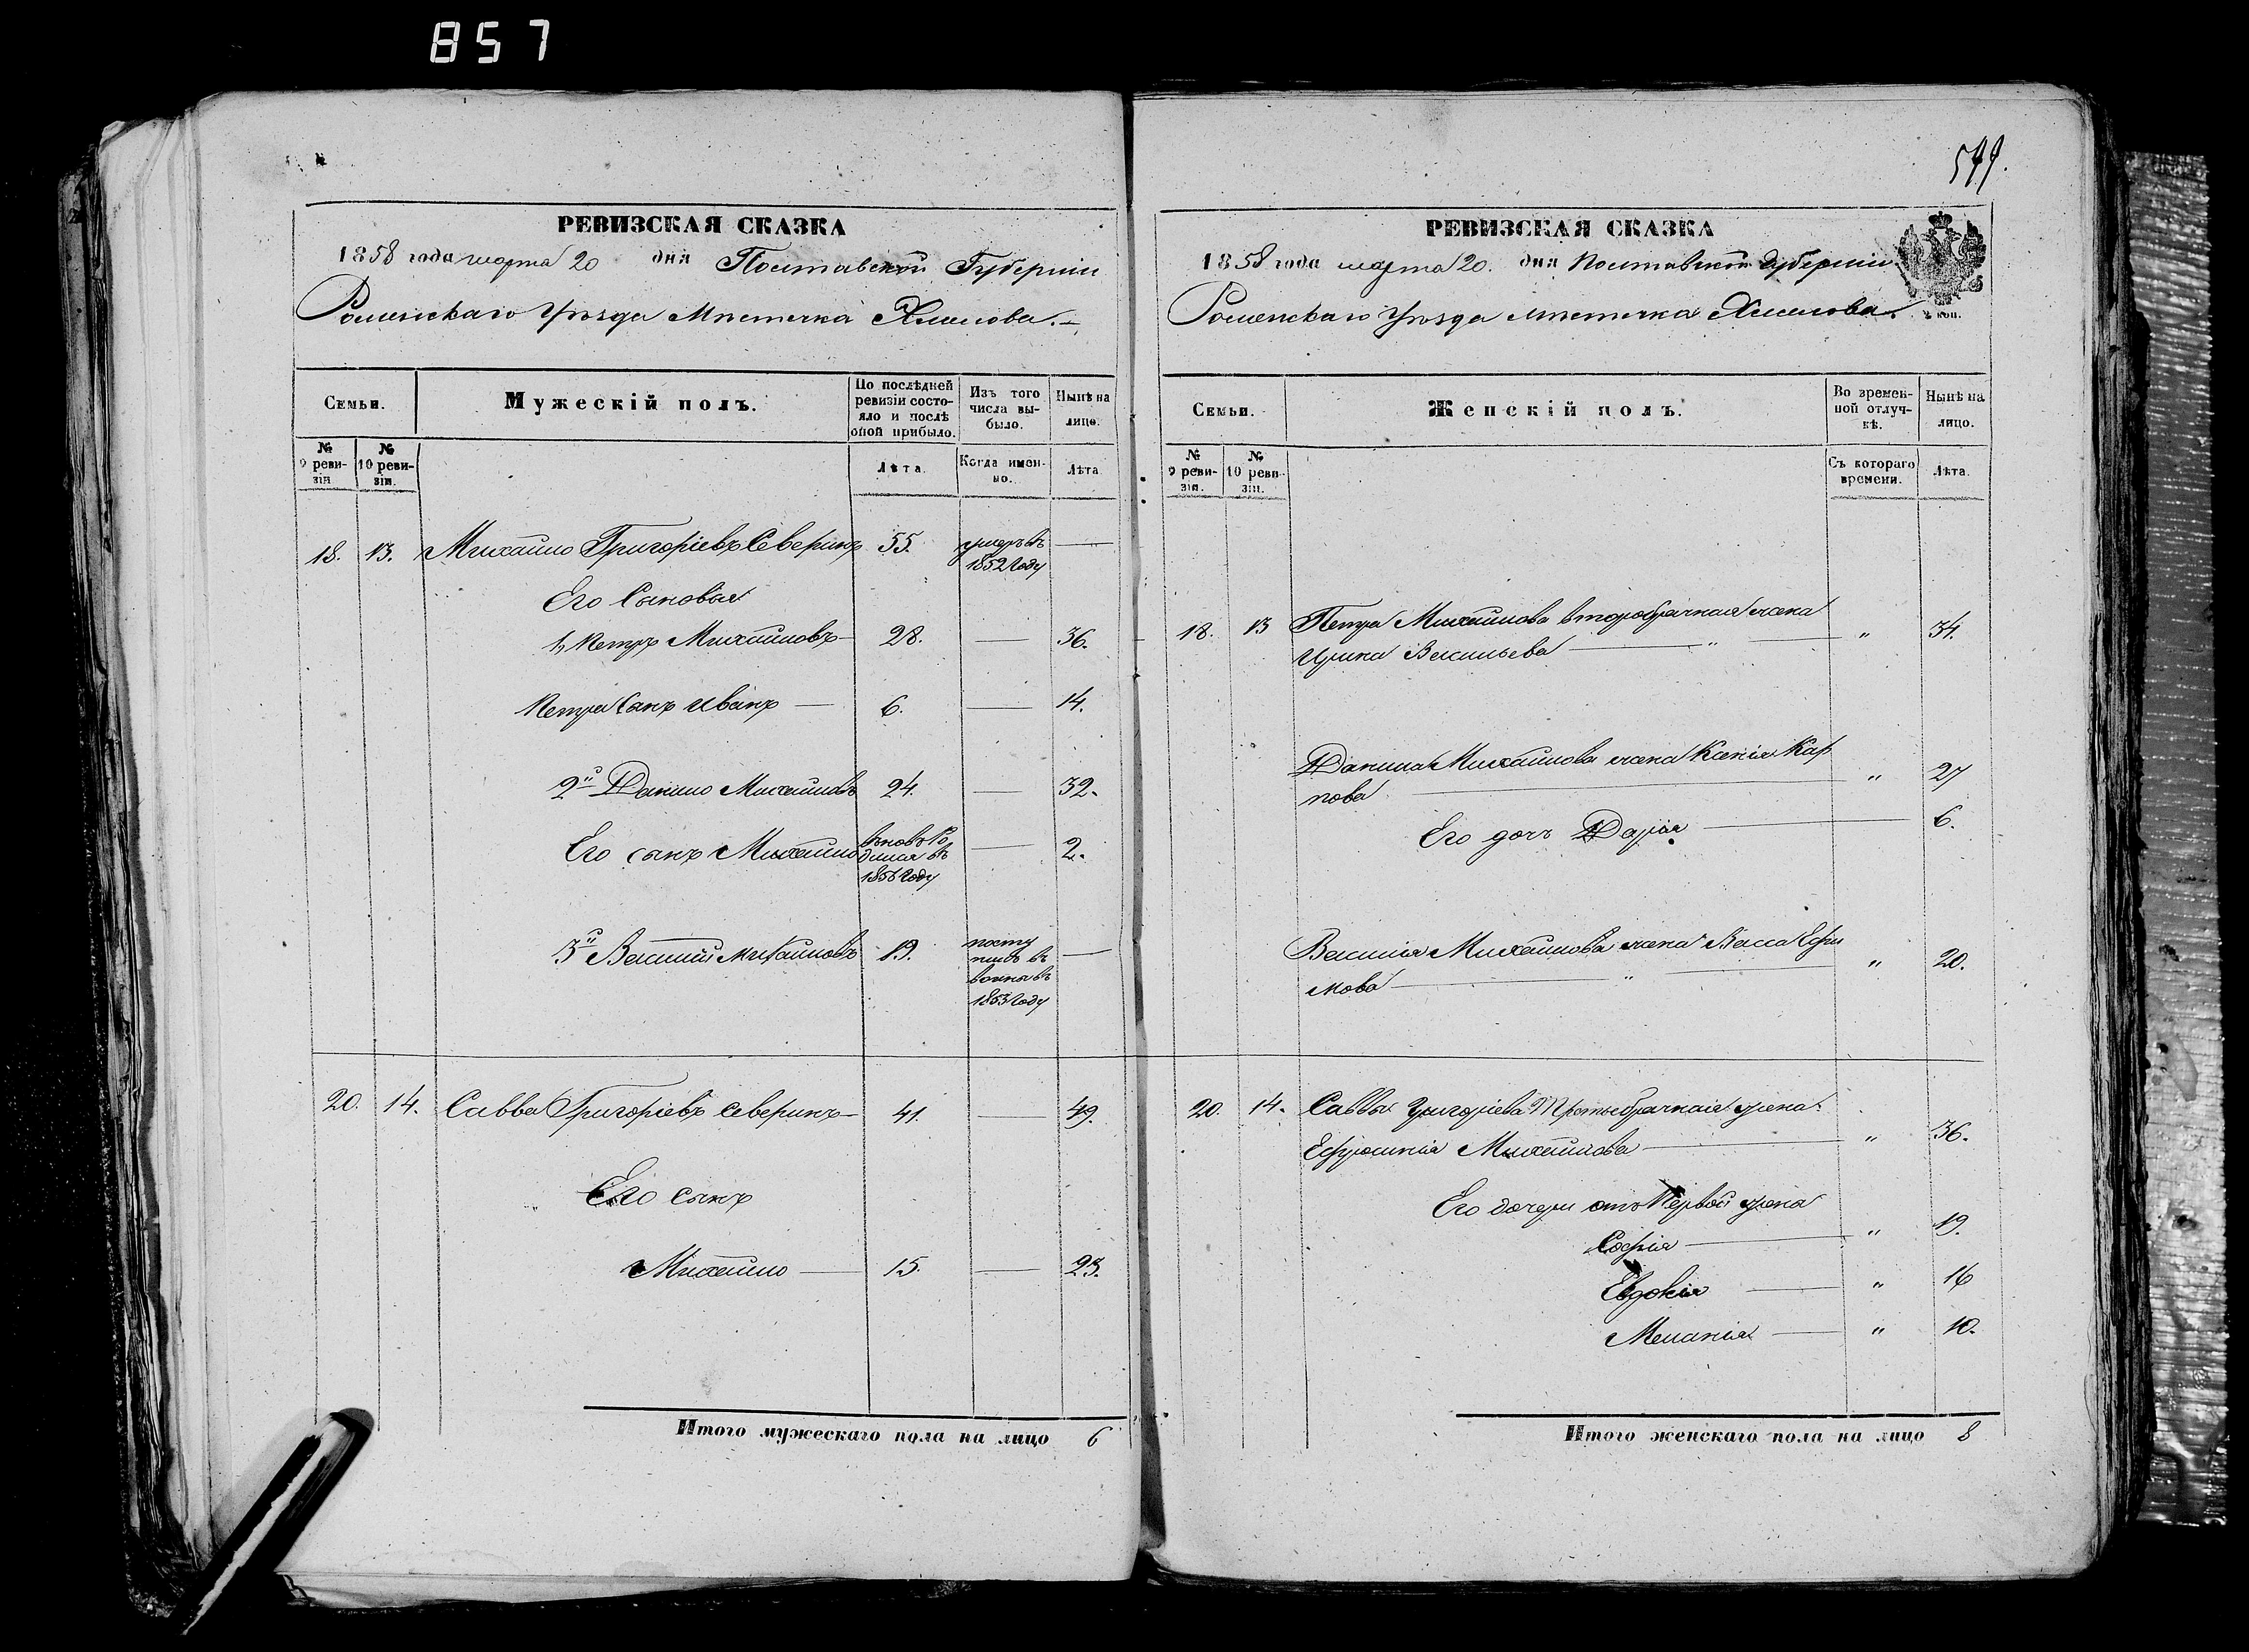 857
РЕВИЗСКАЯ СКАЗКА
1858 года марта 20 дня Полтавской Губерніи
Роменскаго Уѣзда Мѣстечка Хмелова.
Семьи.
Мужескій полъ.
По послѣдней ревизіи состояло и послѣ оной прибыло.
Изъ того числа выбыло.
Нынѣ на лицо.
№ 9 ревизіи
№ 10 ревизіи.
Лѣта.
Когда именно.
Лѣта
18. 13. Михайло Григоріевъ Северинъ 55. умеръ въ 1852 году —
Его Сыновья
1, Петръ Михайловъ — 28. — 36.
Петра Сынъ Иванъ — 6. — 14.
2й Данило Михайловъ 24. — 32.
Его сынъ Михайло вновь Родился въ 1856 году — 2.
3й Василій Михайловъ 19. поступилъ въ воины въ 1853 году —
20. 14. Савва Григоріевъ Северинъ — 41. — 49.
Его сынъ
Михайло — 15. — 23.
Итого мужескаго пола на лицо 6
РЕВИЗСКАЯ СКАЗКА
1858 года марта 20. дня Полтавской Губерніи
Роменскаго Уѣзда Мѣстечка Хмелова.
коп.
Семьи.
Женскій полъ.
Во временной отлучкѣ.
Нынѣ на лицо.
№ 9 ревизіи.
№ 10 ревизіи.
Съ котораго времени.
Лѣта.
18. 13 Петра Михайлова второбрачная жена
Ирина Васильева — " 34.
Данила Михайлова жена Ксенія Кар
пова — " 27
Его дочь Дарія — 6.
Василія Михайлова жена Васса Ефи
мова — " 20.
20. 14. Саввы Григоріева Третьебрачная жена
Ефросинія Михайлова — " 36.
Его дочери отъ Первой жена
Софія — " 19.
Евдокія — " 16
Меланія — " 10.
Итого женскаго пола на лицо 8